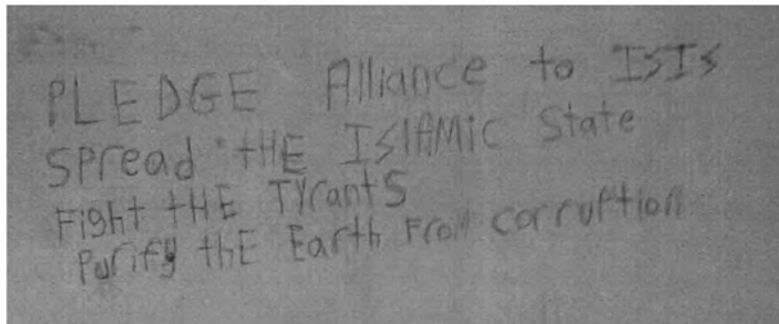 PLEDGE Alliance to ISIS
SPread tHE ISlAMiC State
Fight tHE TYrantS
Purify thE Earth From corruption